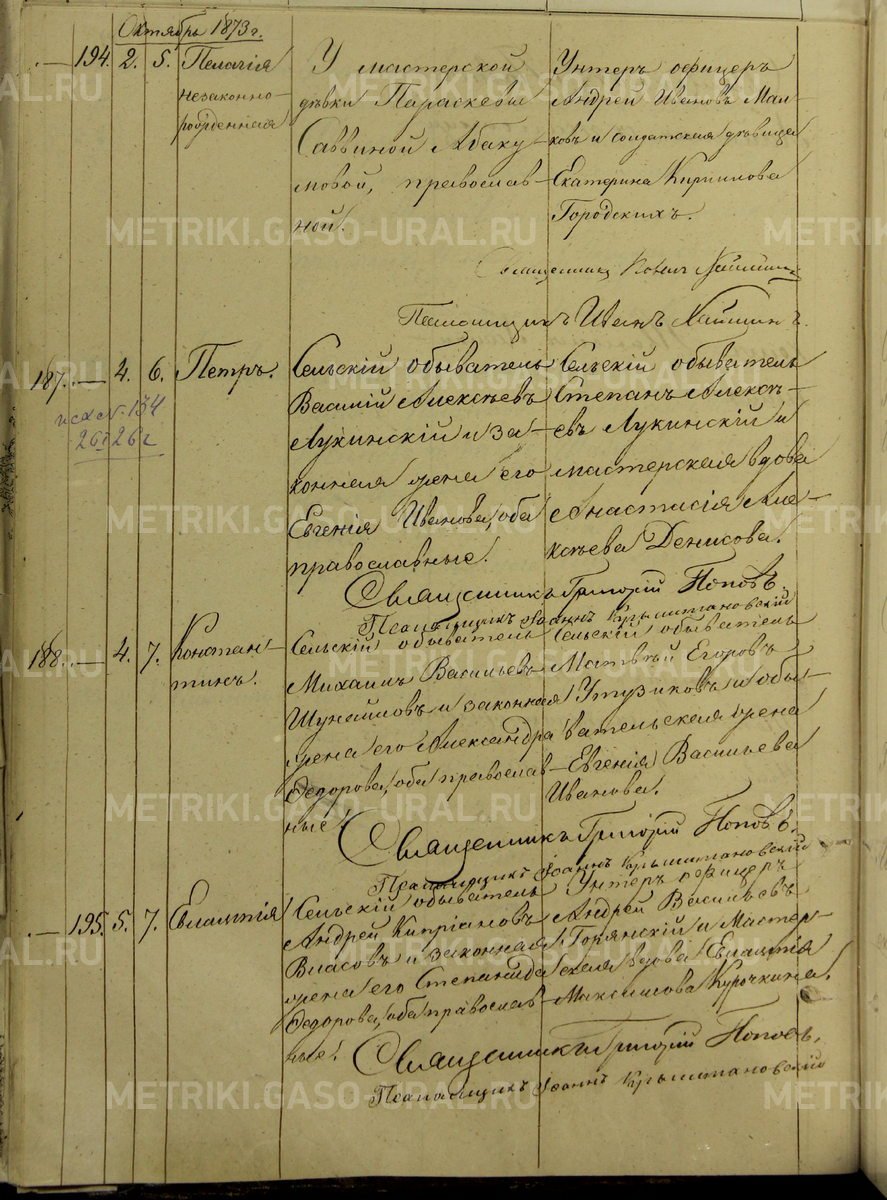 Октябрь 1873 г.
— 194. 2. 5. Пелагія
незаконно-
рожденная
У мастерской
дѣвки Параскевы
Саввиной Абаку-
мовой, православ-
ной.
Унтеръ офицеръ
Андрей Ивановъ Мал-
ковъ и солдатская дѣвица
Екатерина Кирилова
Городскихъ.
Священникъ
Псаломщикъ Иванъ
187. — 4. 6. Петръ.
исх № 134
Сельскій обыватель
Василій Алексѣевъ
Лукинскій и за-
конная жена его
Евгенія Иванова, оба
православные.
Сельскій обыватель
Степанъ Алексѣ-
евъ Лукинскій и
мастерская вдова
Анастасія Але-
ксѣева Денисова.
Священникъ Григорій Поповъ.
Псаломщикъ Іоаннъ Крыштановскій
188. — 4. 7. Констан-
тинъ.
Сельскій обыватель
Михаилъ Васильевъ
Шунайловъ и законная
жена его Александра
Федорова, оба православ-
ные.
Сельскій обыватель
Матвѣй Егоровъ
Утузиковъ и обы-
вательская жена
Евгенія Васильева
Иванова.
Священникъ Григорій Поповъ.
Псаломщикъ Іоаннъ Крыштановскій
— 195. 5. 7. Евлампія
Сельскій обыватель
Андрей Кипріановъ
Власовъ и законная
жена его Степанида
Федорова, оба православ-
ные.
Унтеръ офицеръ
Андрей Васильевъ
Горянскій и Мастер-
ская вдова Евлампія
Максимова Курочкина.
Священникъ Григорій Поповъ.
Псаломщикъ Іоаннъ Крыштановскій
METRIKI.GASO-URAL.RU